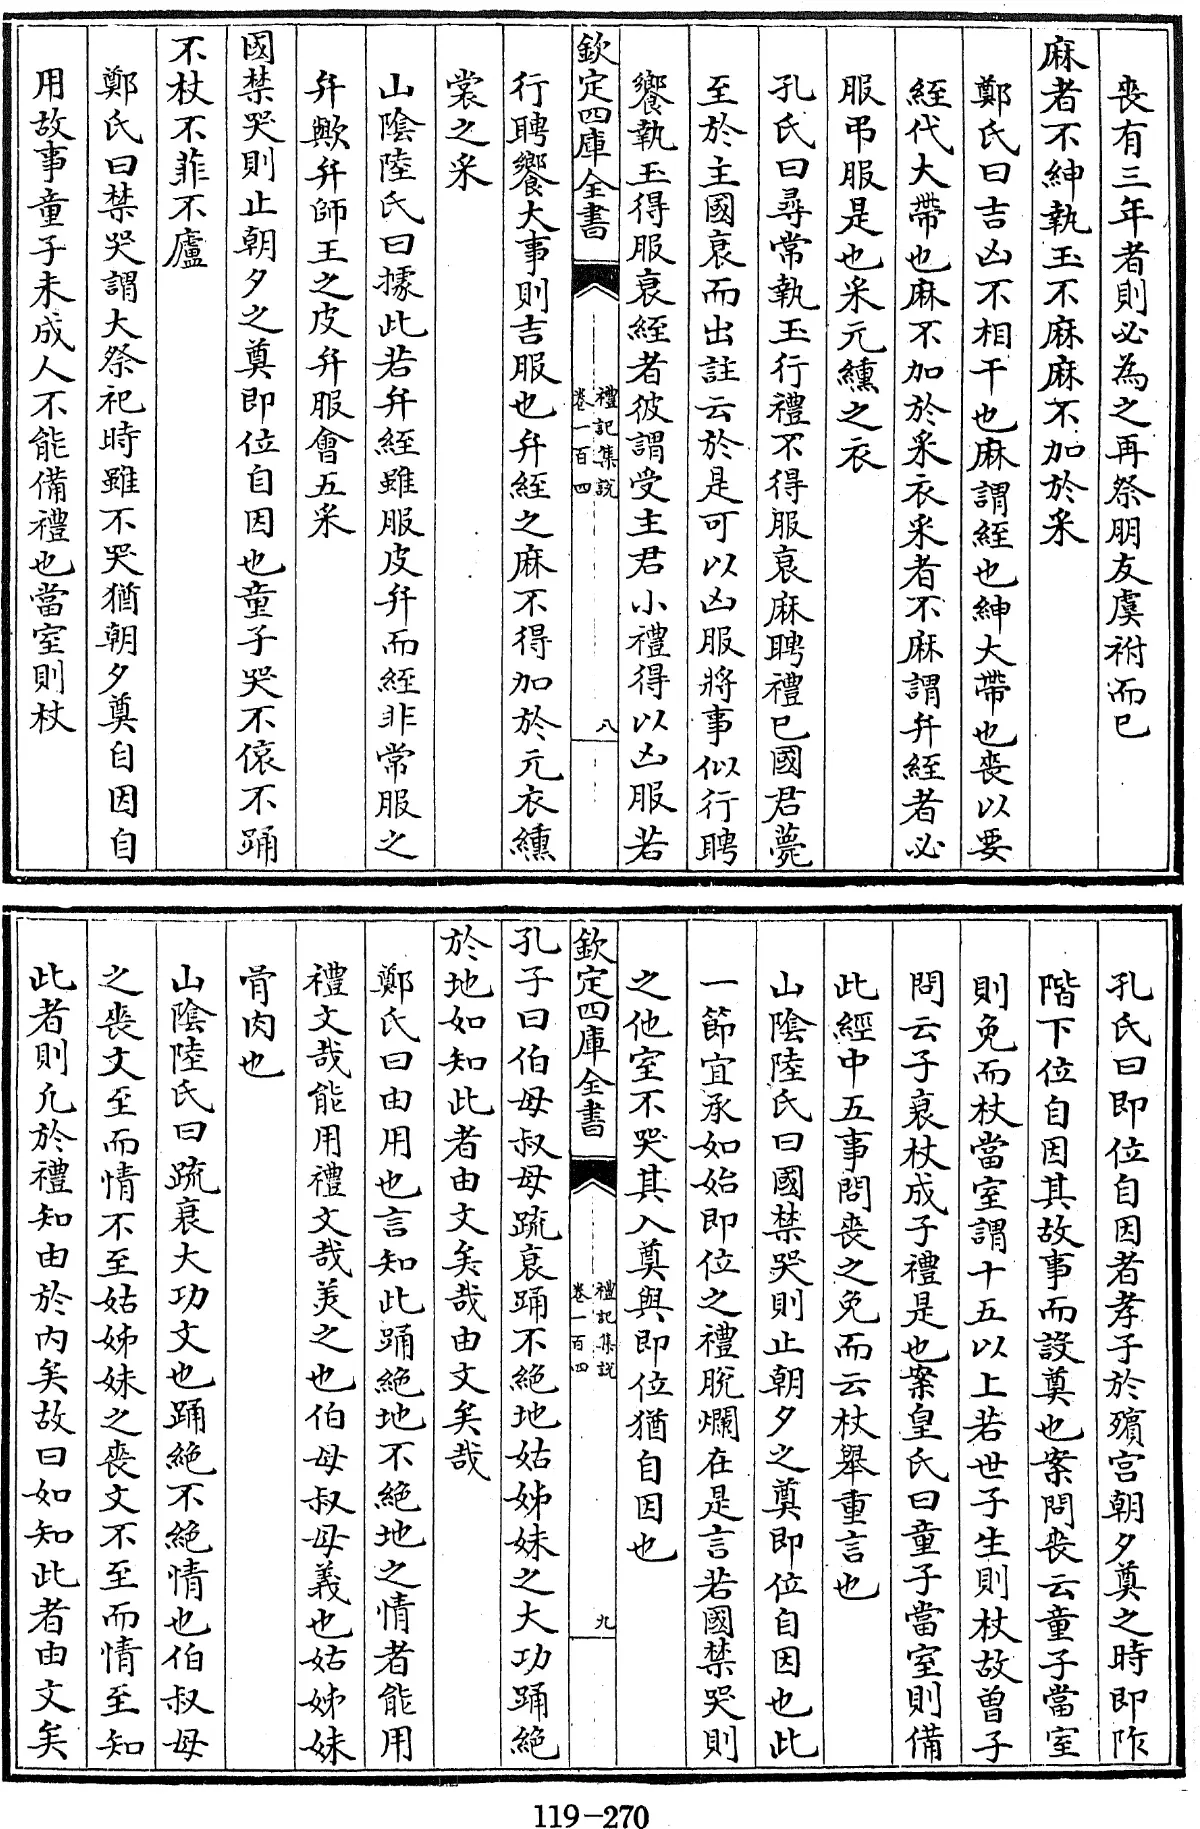 喪有三年者則必為之再祭朋友虞祔而已
麻者不紳執玉不麻麻不加於采
鄭氏曰吉凶不相干也麻謂絰也紳大帶也喪以要
絰代大帶也麻不加於采衣采者不麻謂弁絰者必
服弔服是也采元纁之衣
孔氏曰尋常執玉行禮不得服衰麻聘禮已國君薨
至於主國衰而出註云於是可以凶服將事似行聘
饗執玉得服衰絰者彼謂受主君小禮得以凶服若
欽定四庫全書
禮記集說
卷一百四
八
行聘饗大事則吉服也弁絰之麻不得加於元衣纁
裳之采
山陰陸氏曰據此若弁絰雖服皮弁而絰非常服之
弁歟弁師王之皮弁服會五采
國禁哭則止朝夕之奠即位自因也童子哭不偯不踊
不杖不菲不廬
鄭氏曰禁哭謂大祭祀時雖不哭猶朝夕奠自因自
用故事童子未成人不能備禮也當室則杖
孔氏曰即位自因者孝子於殯宮朝夕奠之時即阼
階下位自因其故事而設奠也案問喪云童子當室
則免而杖當室謂十五以上若世子生則杖故曾子
問云子衰杖成子禮是也案皇氏曰童子當室則備
此經中五事問喪之免而云杖舉重言也
山陰陸氏曰國禁哭則止朝夕之奠即位自因也此
一節宜承如始即位之禮脫爛在是言若國禁哭則
之他室不哭其入奠與即位猶自因也
欽定四庫全書
禮記集說
卷一百四
九
孔子曰伯母叔母疏衰踊不絕地姑姊妹之大功踊絕
於地如知此者由文矣哉由文矣哉
鄭氏曰由用也言知此踊絕地不絕地之情者能用
禮文哉能用禮文哉美之也伯母叔母義也姑姊妹
骨肉也
山陰陸氏曰疏衰大功文也踊絕不絕情也伯叔母
之喪文至而情不至姑姊妹之喪文不至而情至知
此者則凡於禮知由於內矣故曰如知此者由文矣
119-270